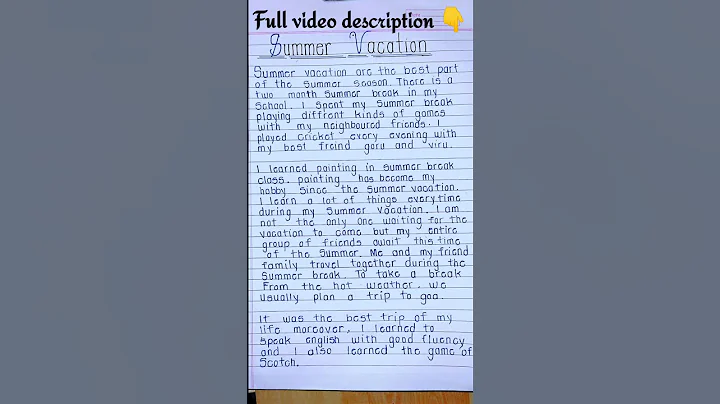 Full video description 👇
Summer Vacation
Summer vacation are the best part
of the summer season. There is a
two month summer break in my
school. I spent my summer break
playing diffrent kinds of games
with my neighboured friends. I
played cricket every evening with
my best freind goru and viru.
I learned painting in summer break
class. painting has become my
hobby since the summer vacation.
I learn a lot of things everytime
during my summer vacation. I am
not the only one waiting for the
vacation to come but my entire
group of friends await this time
of the summer. Me and my friend
family travel together during the
summer break. To take a break
From the hot weather, we
usually plan a trip to goa.
It was the best trip of my
life moreover, I learned to
speak english with good fluency
and I also learned the game of
Scotch.